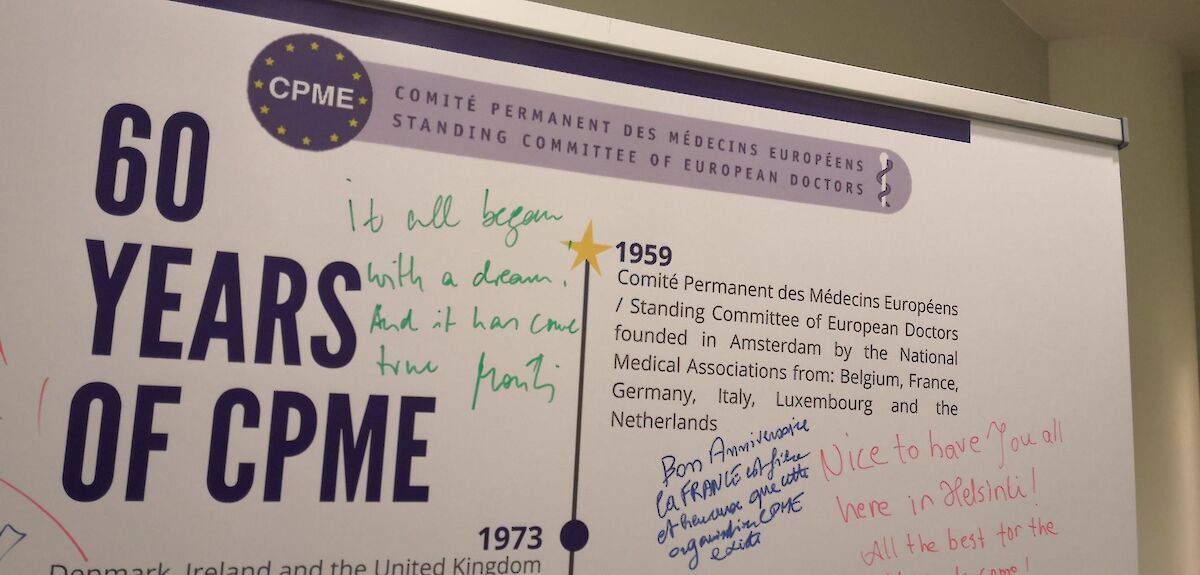 CPME
COMITÉ PERMANENT DES MÉDECINS EUROPÉENS
STANDING COMMITTEE OF EUROPEAN DOCTORS
60
YEARS
OF CPME
it all began
with a dream.
And it has come
true
1959
Comité Permanent des Médecins Européens
/ Standing Committee of European Doctors
founded in Amsterdam by the National
Medical Associations from: Belgium, France,
Germany, Italy, Luxembourg and the
Netherlands
Bon Anniversaire
la FRANCE est fière
et heureuse que cette
organisation CPME
existe
Nice to have You all
here in Helsinki!
All the best for the
1973
Denmark, Ireland and the United Kingdom